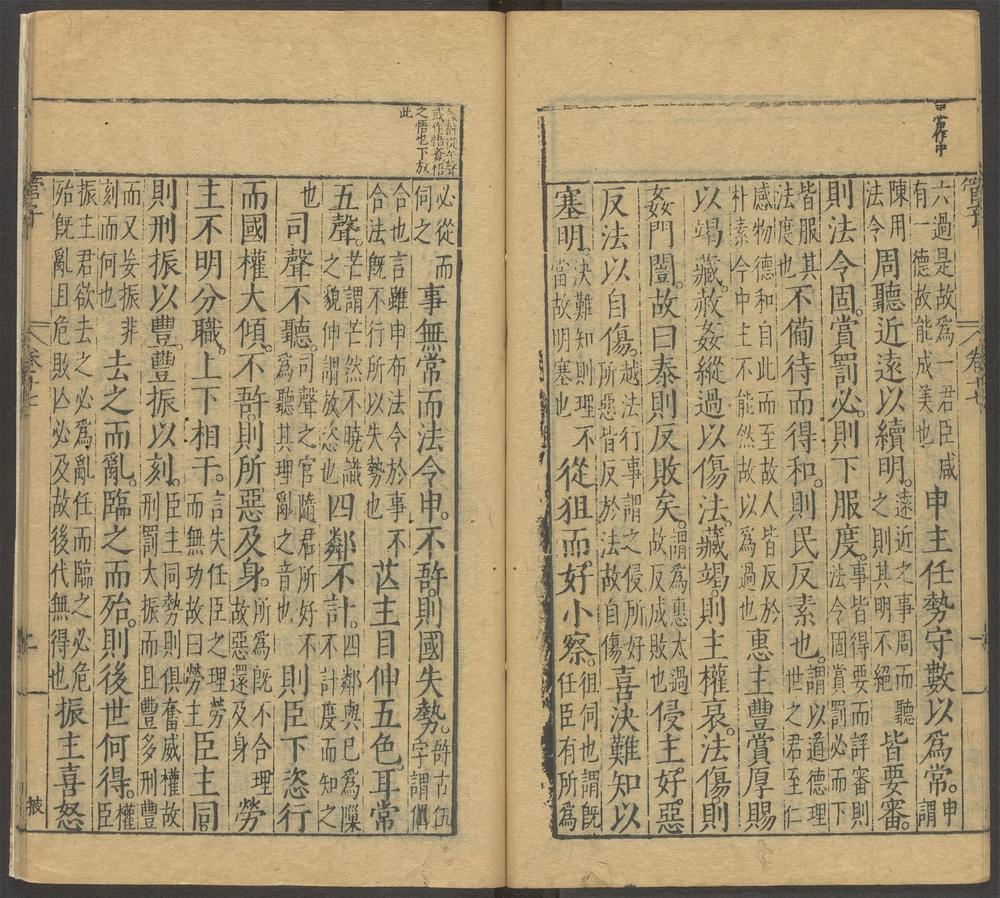 言當作中
管子
卷十七
六過是故爲一君臣咸
有一德故能成美也
申主任勢守數以爲常。
申
謂
陳用
法令
周聽近遠以續明。
遠近之事周而聽
之則其明不絕
皆要審。
則法令固。賞罰必。則下服度。
事皆得要而詳審則
法令固賞罰必而下
皆服其
法度也
不備待而得和。則民反素也。
謂以道德理
世之君至仁
感物德和自此而至故人皆反於
朴素今中主不能然故以爲過也
惠主豐賞厚賜
以竭藏。赦姦縱過以傷法。藏竭。則主權衰。法傷則
姦門闓。故曰泰則反敗矣。
謂爲惠太過
故反成敗也
侵主好惡
反法以自傷。
越法行事謂之侵所好
所惡皆反於法故自傷
喜決難知以
塞明。
決難知則理不
當故明塞也
從狙而好小察。
狙伺也謂既
任臣有所爲
或作悟奮悟
之悟也下放
此
必從而
伺之
事無常而法令申。不䛩。則國失勢。
䛩古伍
字謂偶
合也言雖申布法令於事不
合法既不行所以失勢也
芒主目伸五色。耳常
五聲。
芒謂芒然不曉識
之貌伸謂放恣也
四鄰不計。
四鄰與已爲隟
不計度而知之
也
司聲不聽。
司聲之官隨君所好不
爲聽其理亂之音也
則臣下恣行
而國權大傾。不䛩。則所惡及身。
所爲既不合理
故惡還及身
勞
主不明分職。上下相干。
言失任臣之理勞
而無功故曰勞主
臣主同。
則刑振以豐。豐振以刻。
臣主同勢則俱奮威權故
刑罰大振而且豐多刑豐
而又妄振非
刻而何也
去之而亂。臨之而殆。則後世何得。
權
臣
振主君欲去之必爲亂任而臨之必危
殆既亂且危敗亾必及故後代無得也
振主喜怒
管子
卷十七